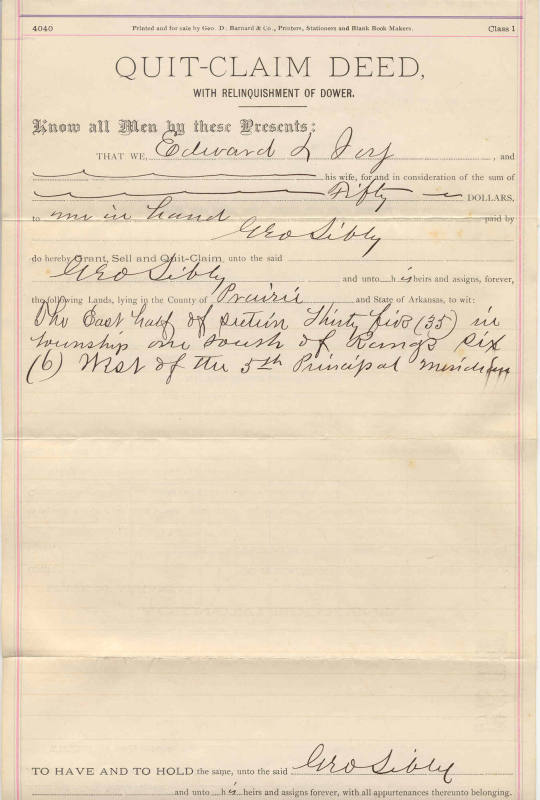 4040 Printed and for sale by Geo. D. Barnard & Co., Printers, Stationers and Blank Book Makers. Class 1
QUIT-CLAIM DEED,
WITH RELINQUISHMENT OF DOWER.
Know all Men by these Presents:
THAT WE, Edward L , and
his wife, for and in consideration of the sum of
Fifty DOLLARS,
to me in hand paid by
Geo Sibly
do hereby Grant, Sell and Quit-Claim, unto the said
Geo Sibly and unto h is heirs and assigns, forever,
the following Lands, lying in the County of Prairie and State of Arkansas, to wit:
The East half of section Thirty five (35) in
township one South of Range six
(6) West of the 5th Principal meridian
TO HAVE AND TO HOLD the same, unto the said Geo Sibly
and unto h is heirs and assigns forever, with all appurtenances thereunto belonging.